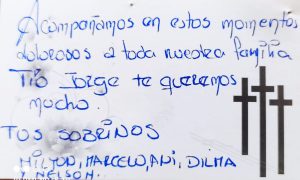 Acompañamos en estos momentos
dolorosos a toda nuestra familia
Tio Jorge te queremos
mucho.
TUS SOBRINOS
MILTON, MARCELO, ANI, DILMA
Y NELSON.